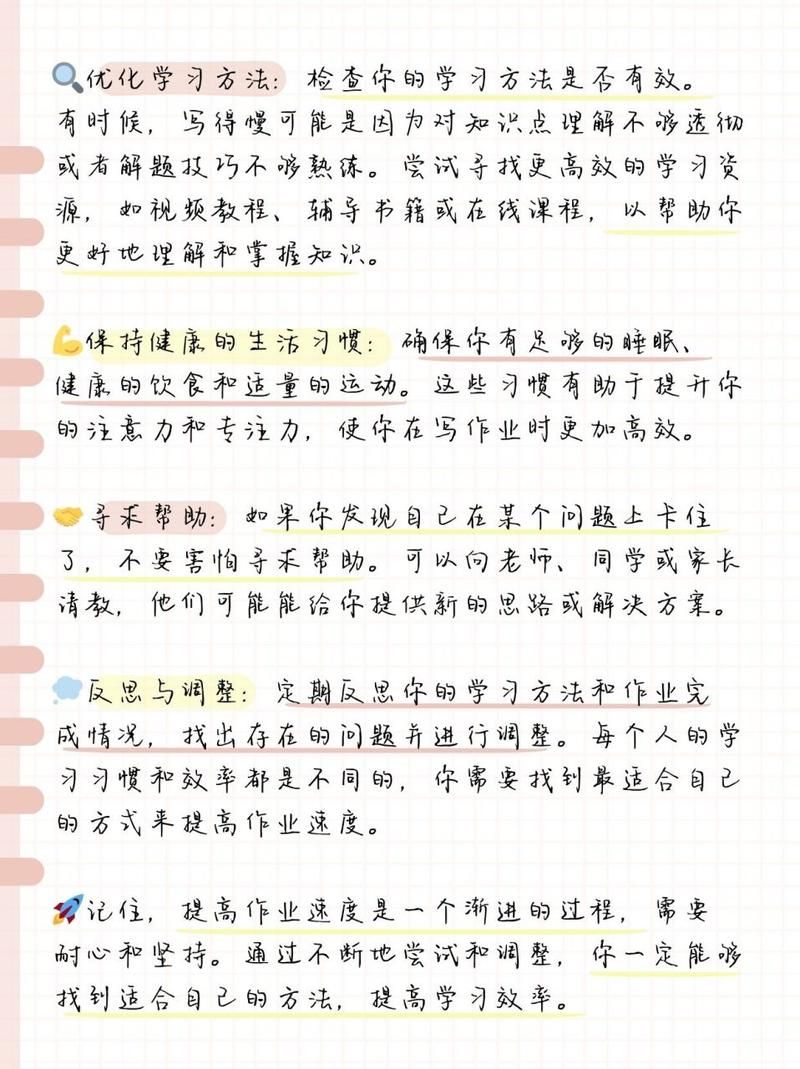 优化学习方法: 检查你的学习方法是否有效。
有时候，写得慢可能是因为对知识点理解不够透彻
或者解题技巧不够熟练。尝试寻找更高效的学习资
源，如视频教程、辅导书籍或在线课程，以帮助你
更好地理解和掌握知识。
保持健康的生活习惯: 确保你有足够的睡眠、
健康的饮食和适量的运动。这些习惯有助于提升你
的注意力和专注力，使你在写作业时更加高效。
寻求帮助: 如果你发现自己在某个问题上卡住
了，不要害怕寻求帮助。可以向老师、同学或家长
请教，他们可能能给你提供新的思路或解决方案。
反思与调整: 定期反思你的学习方法和作业完
成情况，找出存在的问题并进行调整。每个人的学
习习惯和效率都是不同的，你需要找到最适合自己
的方式来提高作业速度。
记住，提高作业速度是一个渐进的过程，需要
耐心和坚持。通过不断地尝试和调整，你一定能够
找到适合自己的方法，提高学习效率。